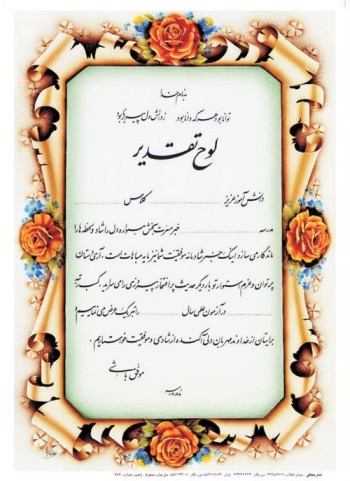 بنام خدا
توانا بود هر که دانا بود ز دانش دل پیر برنا بود
لوح تقدیر
دانش‌آموز عزیز کلاس
مدرسه خبر مسرت بخش همواره دل را شاد و لحظه‌ها را
ماندگار می‌سازد و اینک خبر شادمانه موفقیت شما نیز مایه مباهات است. آری دستان
پرتوان و عزم استوار تو بار دیگر حدیث پر افتخار پیروزی را می‌سراید. کسب رتبه
در آزمون علمی سال را تبریک عرض می‌نماییم و
برایتان از خداوند مهربان دلی آکنده از شادی و موفقیت خواستاریم.
موفق باشی
مدرسه